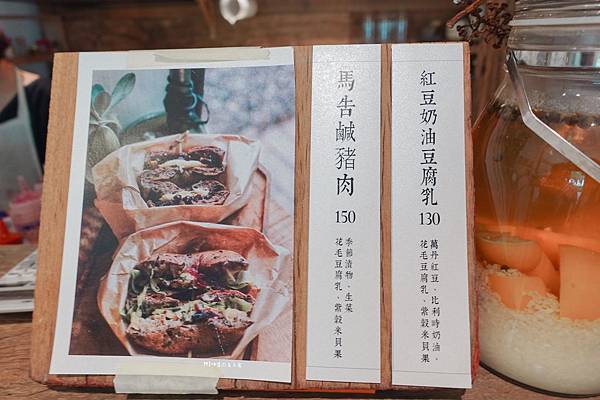 紅豆奶油豆腐乳
130
萬丹紅豆。比利時奶油。
花毛豆腐乳、紫穀米貝果
馬告鹹豬肉
150
季節漬物、生菜
花毛豆腐乳、紫穀米貝果